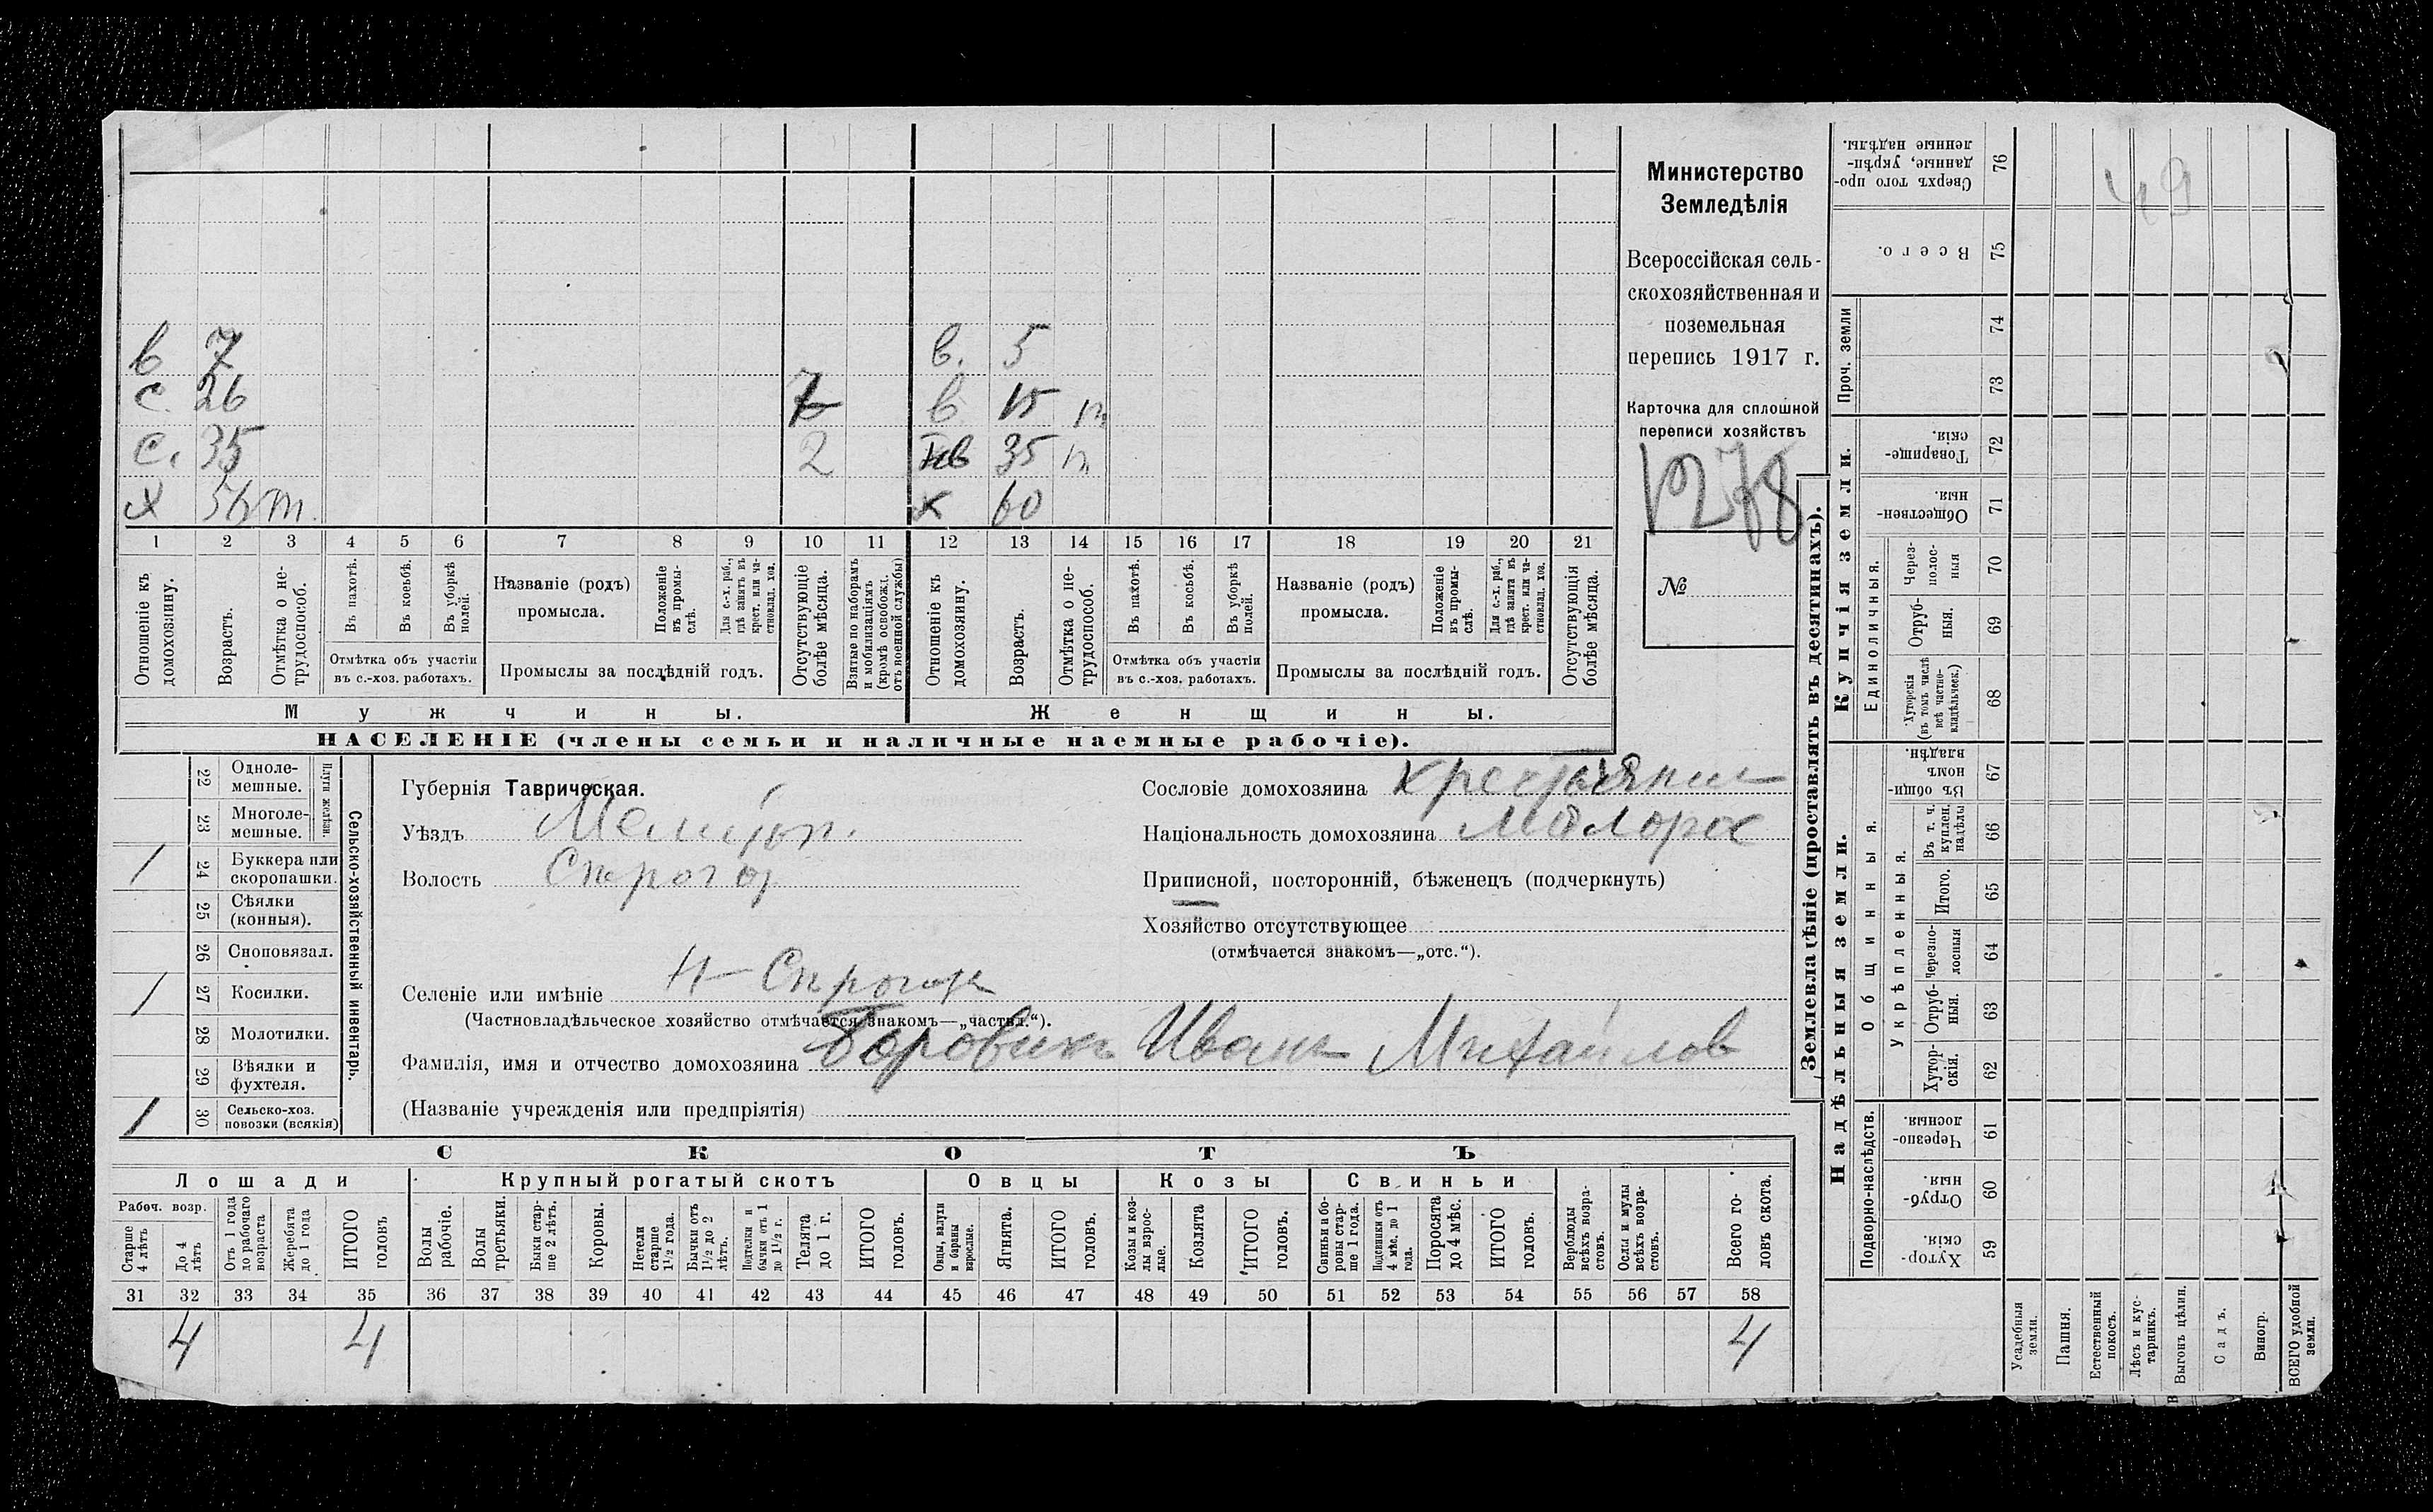 Министерство
Земледѣлія
Всероссійская сель-
скохозяйственная и
поземельная
перепись 1917 г.
Карточка для сплошной
переписи хозяйствъ
1278
№
в 7 в. 5
с. 26 7 в 15 п
с. 35 2 нв 35 п
х 56 п. х 60
1 2 3 4 5 6 7 8 9 10 11 12 13 14 15 16 17 18 19 20 21
Отношеніе къ домохозяину.
Возрастъ.
Отмѣтка о не-трудоспособ.
Въ пахотѣ.
Въ косьбѣ.
Въ уборкѣ полей.
Отмѣтка объ участіи
въ с.-хоз. работахъ.
Названіе (родъ)
промысла.
Положеніе въ промы-слѣ.
Для с.-х. раб., гдѣ занятъ въ крест. или ча-стновлад. хоз.
Промыслы за послѣдній годъ.
Отсутствующіе болѣе мѣсяца.
Взятые по наборамъ и мобилизаціямъ (кромѣ освобожд. отъ военной службы)
Отношеніе къ домохозяину.
Возрастъ.
Отмѣтка о не-трудоспособ.
Въ пахотѣ.
Въ косьбѣ.
Въ уборкѣ полей.
Отмѣтка объ участіи
въ с.-хоз. работахъ.
Названіе (родъ)
промысла.
Положеніе въ промы-слѣ.
Для с.-х. раб., гдѣ занята въ крест. или ча-стновлад. хоз.
Промыслы за послѣдній годъ.
Отсутствующія болѣе мѣсяца.
Мужчины. Женщины.
НАСЕЛЕНІЕ (члены семьи и наличные наемные рабочіе).
Сельско-хозяйственный инвентарь.
Плуги желѣзн.
22 Одноле-мешные.
23 Многоле-мешные.
1 24 Буккера или скоропашки.
25 Сѣялки (конныя).
26 Сноповязал.
1 27 Косилки.
28 Молотилки.
29 Вѣялки и фухтеля.
1 30 Сельско-хоз. повозки (всякія)
Губернія Таврическая.
Уѣздъ Мелитоп.
Волость
Селеніе или имѣніе
(Частновладѣльческое хозяйство отмѣчается знакомъ—„частвл.“).
Фамилія, имя и отчество домохозяина Боровикъ Иванъ Михайлов
(Названіе учрежденія или предпріятія)
Сословіе домохозяина крестьянин
Національность домохозяина Малорос
Приписной, посторонній, бѣженецъ (подчеркнуть)
Хозяйство отсутствующее
(отмѣчается знакомъ—„отс.“).
СКОТЪ
Лошади Крупный рогатый скотъ Овцы Козы Свиньи
Рабоч. возр.
Старше 4 лѣтъ
До 4 лѣтъ
Отъ 1 года до рабочаго возраста
Жеребята до 1 года
ИТОГО головъ
Волы рабочіе.
Волы третьяки.
Быки стар-ше 2 лѣтъ.
Коровы.
Нетели старше 1½ года.
Бычки отъ 1½ до 2 лѣтъ.
Подтелки и бычки отъ 1 до 1½ г.
Телята до 1 г.
ИТОГО головъ.
Овцы, валухи и бараны взрослые.
Ягнята.
ИТОГО головъ.
Козы и коз-лы взрос-лые.
Козлята
ИТОГО головъ.
Свиньи и бо-ровы стар-ше 1 года.
Подсвинки отъ 4 мѣс. до 1 года.
Поросята до 4 мѣс.
ИТОГО головъ.
Верблюды всѣхъ возра-стовъ.
Ослы и мулы всѣхъ возра-стовъ.
Всего го-ловъ скота.
31 32 33 34 35 36 37 38 39 40 41 42 43 44 45 46 47 48 49 50 51 52 53 54 55 56 57 58
4 4 4
Землевладѣніе (проставлять въ десятинахъ).
Купчія земли.
Надѣльныя земли.
49
Сверхъ того про-данные, укрѣп-ленные надѣлы. 76
Всего. 75
Проч. земли
74
73
Товарище-скія. 72
Обществен-ныя. 71
Единоличныя.
Через-полос-ныя 70
Отруб-ныя. 69
Хуторскія (въ томъ числѣ всѣ частно-владѣльческ.) 68
Общинныя.
Въ общи-номъ владѣн. 67
Въ т. ч. куплен. надѣлы 66
Укрѣпленныя.
Итого. 65
Черезпо-лосныя 64
Отруб-ныя. 63
Хутор-скія. 62
Подворно-наслѣдств.
Черезпо-лосныя. 61
Отруб-ныя. 60
Хутор-скія. 59
Усадебныя земли.
Пашня.
Естественный покосъ.
Лѣсъ и кус-тарникъ.
Выгонъ цѣлин.
Садъ.
Виногр.
ВСЕГО удобной земли.